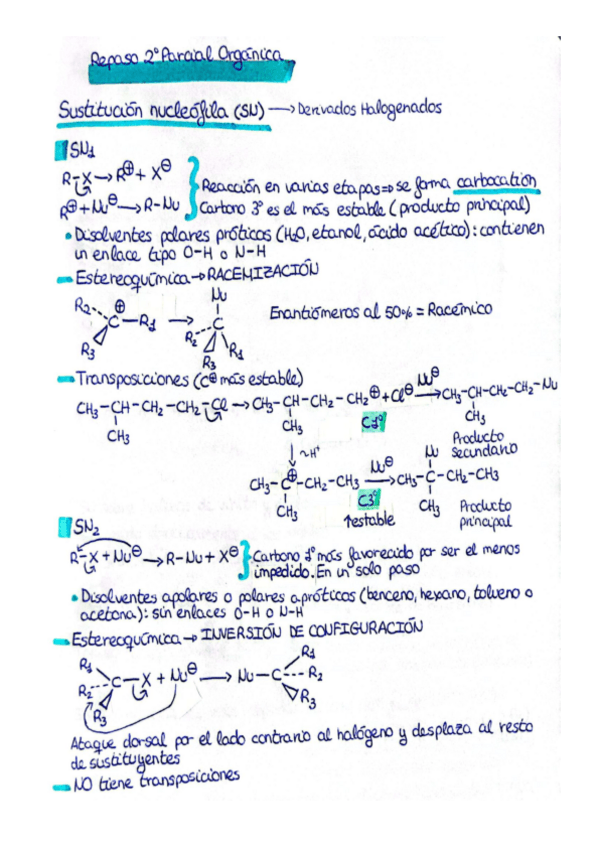 Repaso 2º Parcial Orgánica
Sustitución nucleófila (SN) → Derivados Halogenados
SN1
R-X → R⊕ + X⊖
R⊕ + Nu⊖ → R-Nu
Reacción en varias etapas => se forma carbocatión
Carbono 3º es el más estable (producto principal)
• Disolventes polares próticos (H2O, etanol, ácido acético): contienen
un enlace tipo O-H o N-H
- Estereoquímica → RACEMIZACIÓN
R2 ⊕ C-R1 R3 → Nu R2 C R1 R3
Enantiómeros al 50% = Racémico
- Transposiciones (C⊕ más estable)
CH3-CH-CH2-CH2-Cl → CH3-CH-CH2-CH2⊕ + Cl⊖ Nu⊖ → CH3-CH-CH2-CH2-Nu
CH3 CH3 C1º CH3
↓ ~H⁺
Producto
secundario
Nu
CH3-C⊕-CH2-CH3 Nu⊖ → CH3-C-CH2-CH3
CH3 C3º CH3
↑estable
Producto
principal
SN2
R-X + Nu⊖ → R-Nu + X⊖
Carbono 1º más favorecido por ser el menos
impedido. En un solo paso
• Disolventes apolares o polares apróticos (benceno, hexano, tolueno o
acetona): sin enlaces O-H o N-H
- Estereoquímica → INVERSIÓN DE CONFIGURACIÓN
R1 R2 C-X R3 + Nu⊖ → Nu-C R1 R2 R3
Ataque dorsal por el lado contrario al halógeno y desplaza al resto
de sustituyentes
- NO tiene transposiciones